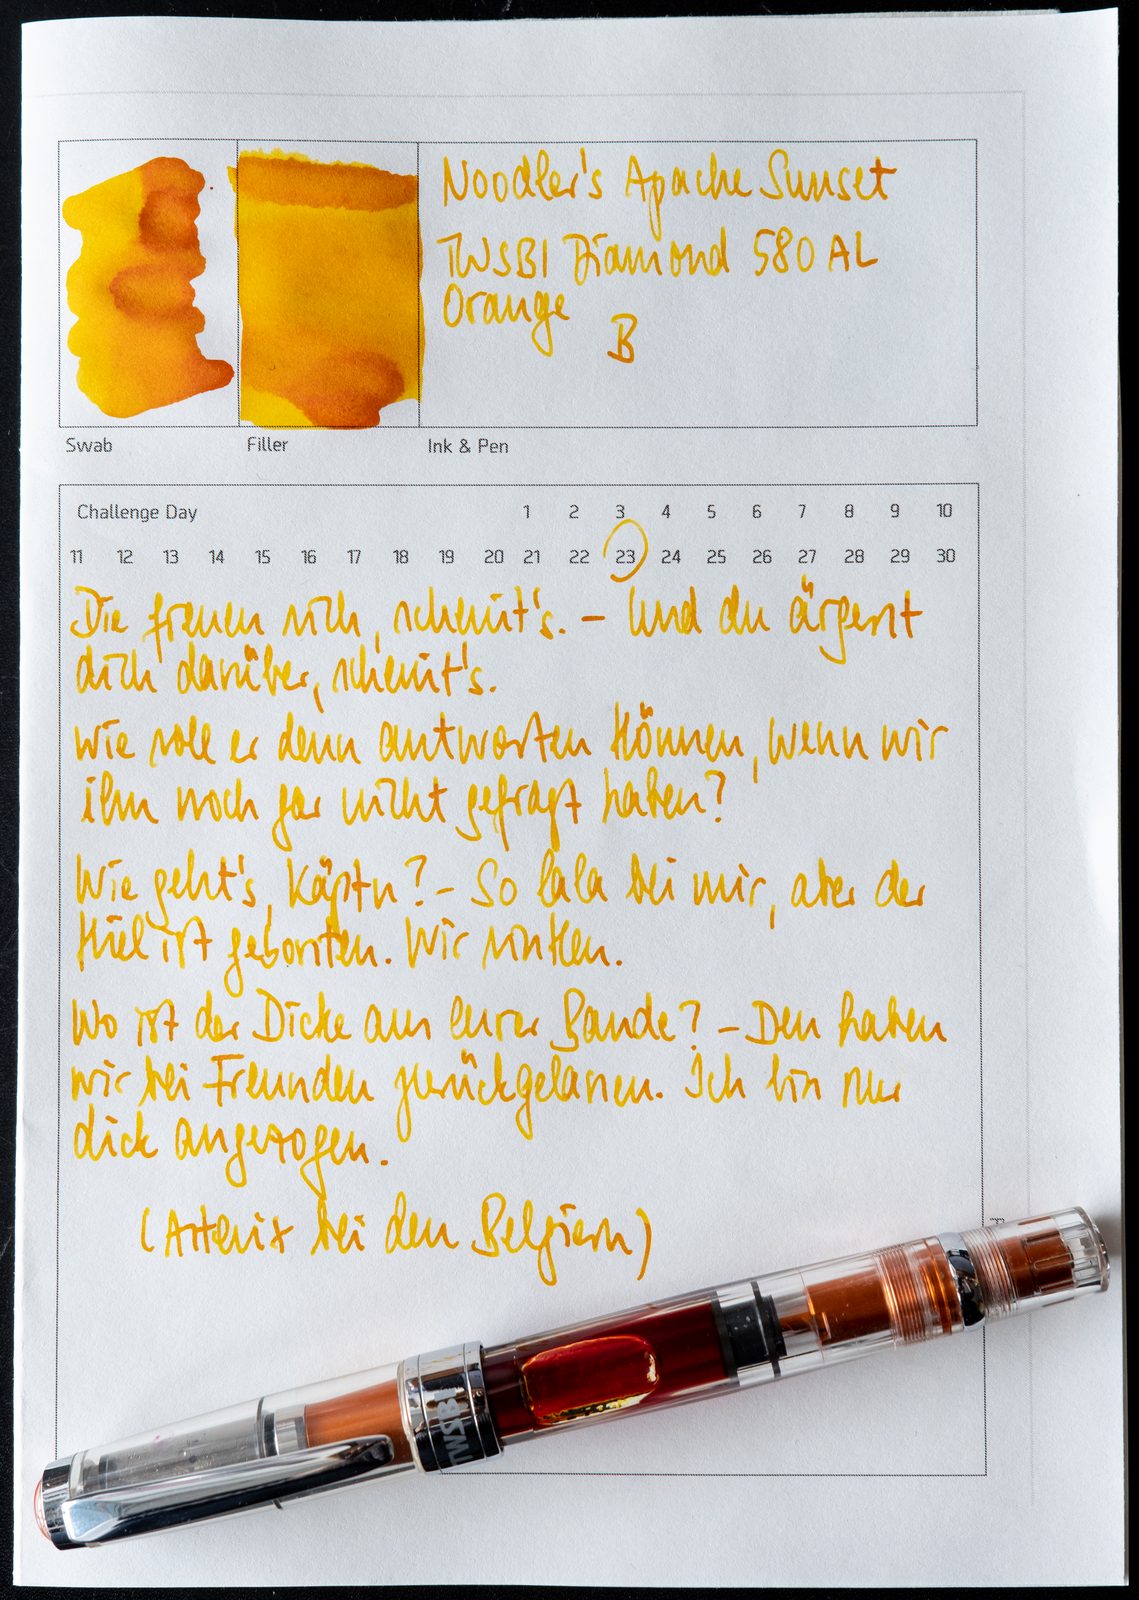 Noodler's Apache Sunset
TWSBI Diamond 580 AL
Orange
B
Swab
Filler
Ink & Pen
Challenge Day 1 2 3 4 5 6 7 8 9 10
11 12 13 14 15 16 17 18 19 20 21 22 23 24 25 26 27 28 29 30
Die freuen sich, scheint's. – Und du ärgerst
dich darüber, scheint's.
Wie soll er denn antworten können, wenn wir
ihn noch gar nicht gefragt haben?
Wie geht's, Käptn? – So lala bei mir, aber der
Kiel ist geborsten. Wir sinken.
Wo ist der Dicke aus eurer Bande? – Den haben
wir bei Freunden zurückgelassen. Ich bin nur
dick angezogen.
(Asterix bei den Belgiern)
TWSBI